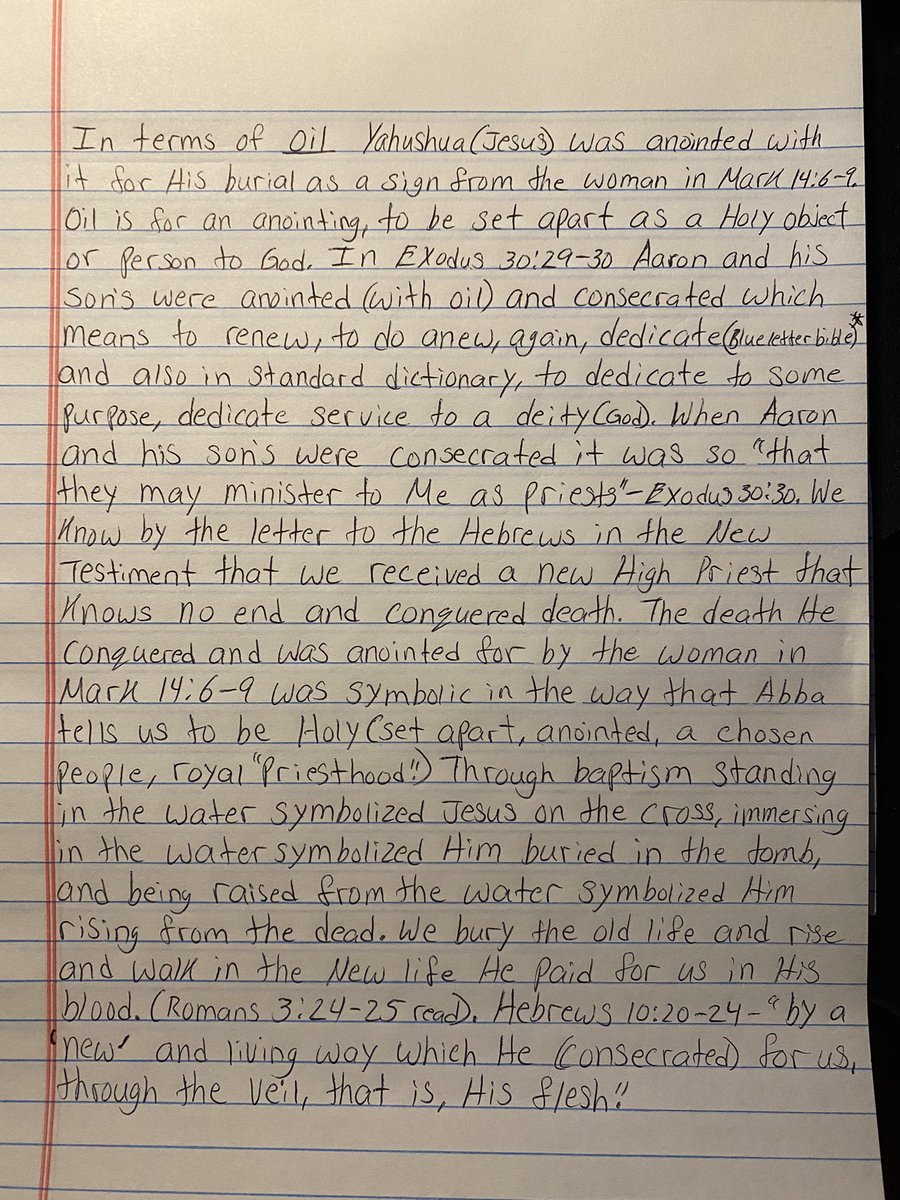 In terms of oil Yahushua (Jesus) was anointed with
it for His burial as a sign from the woman in Mark 14:6-9.
Oil is for an anointing, to be set apart as a Holy object
or person to God. In Exodus 30:29-30 Aaron and his
son's were anointed (with oil) and consecrated which
means to renew, to do anew, again, dedicate (Blue letter bible)*
and also in standard dictionary, to dedicate to some
purpose, dedicate service to a deity (God). When Aaron
and his son's were consecrated it was so "that
they may minister to Me as priests"-Exodus 30:30. We
know by the letter to the Hebrews in the New
Testiment that we received a new High Priest that
knows no end and conquered death. The death He
conquered and was anointed for by the woman in
Mark 14:6-9 was symbolic in the way that Abba
tells us to be Holy (set apart, anointed, a chosen
people, royal "priesthood".) Through baptism standing
in the water symbolized Jesus on the cross, immersing
in the water symbolized Him buried in the tomb,
and being raised from the water symbolized Him
rising from the dead. We bury the old life and rise
and walk in the New life He paid for us in His
blood. (Romans 3:24-25 read). Hebrews 10:20-24-"by a
'new' and living way which He (consecrated) for us,
through the veil, that is, His flesh."